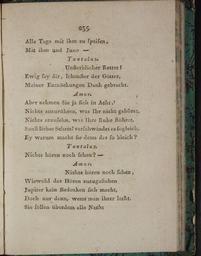 255.
Alle Tage mit ihm zu speisen,
Mit ihm und Juno —
Tantalus.
Unsterblicher Retter!
Ewig sey dir,
der Götter,
Meiner Dank gebracht.
Amor.
Aber nehmen Sie ja sich in Acht!
Nichts anzurühren, was Ihr nicht gehöret,
Nichts was Ihre Ruhe störet,
Sonst lieber verschwindet es sogleich.
Ey warum macht sie denn das so bleich?
Tantalus.
Nichts hören noch sehen? —
Amor.
Nichts hören noch sehen,
Wiewohl das Hören
Jupiter kein Bedenken sich macht,
Doch nur dann, wenn man ihrer lacht.
Sie sollen überdem alle Nacht